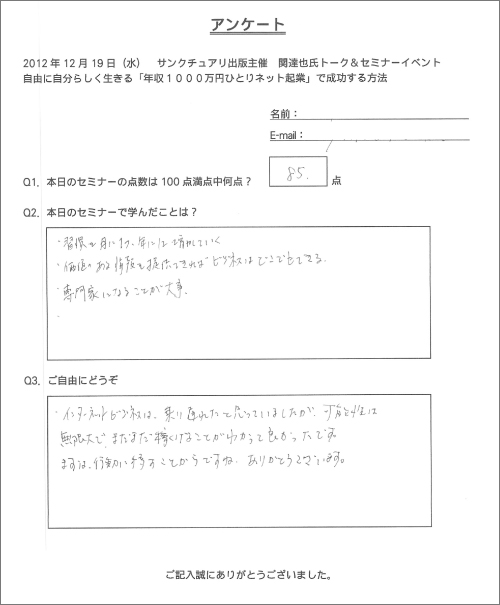 アンケート
2012年12月19日（水）　サンクチュアリ出版主催　関達也氏トーク＆セミナーイベント
自由に自分らしく生きる「年収１０００万円ひとりネット起業」で成功する方法
名前：
E-mail：
Q1. 本日のセミナーの点数は100点満点中何点？　85.　点
Q2. 本日のセミナーで学んだことは？
・習慣を身につけ、
・価値のある情報を提供できればビジネスはどこでもできる.
・専門家になることが大事.
Q3. ご自由にどうぞ
・インターネットビジネスは、乗り遅れたと思っていましたが、可能性は
無限大で、まだまだ稼くけることがわかって良かったです。
まずは、行動に移すことからですね. ありがとうございます。
ご記入誠にありがとうございました。